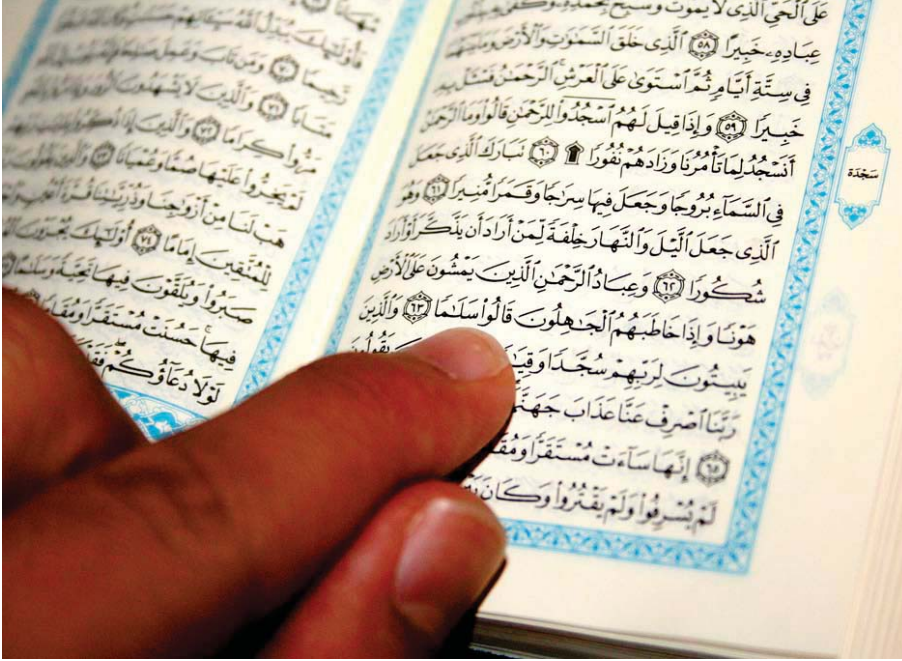 عَلَى ٱلْحَىِّ ٱلَّذِى لَا يَمُوتُ وَسَبِّحْ بِحَمْدِهِۦ وَكَفَىٰ بِهِۦ
عِبَادِهِۦ خَبِيرًا ٥٨ ٱلَّذِى خَلَقَ ٱلسَّمَٰوَٰتِ وَٱلْأَرْضَ وَمَا بَيْنَهُمَا
فِى سِتَّةِ أَيَّامٍ ثُمَّ ٱسْتَوَىٰ عَلَى ٱلْعَرْشِ ٱلرَّحْمَٰنُ فَسْـَٔلْ بِهِۦ
خَبِيرًا ٥٩ وَإِذَا قِيلَ لَهُمُ ٱسْجُدُوا۟ لِلرَّحْمَٰنِ قَالُوا۟ وَمَا ٱلرَّحْمَٰنُ
أَنَسْجُدُ لِمَا تَأْمُرُنَا وَزَادَهُمْ نُفُورًا ٦٠ تَبَارَكَ ٱلَّذِى جَعَلَ
سَجْدَة
فِى ٱلسَّمَآءِ بُرُوجًا وَجَعَلَ فِيهَا سِرَٰجًا وَقَمَرًا مُّنِيرًا ٦١ وَهُوَ
ٱلَّذِى جَعَلَ ٱلَّيْلَ وَٱلنَّهَارَ خِلْفَةً لِّمَنْ أَرَادَ أَن يَذَّكَّرَ أَوْ أَرَادَ
شُكُورًا ٦٢ وَعِبَادُ ٱلرَّحْمَٰنِ ٱلَّذِينَ يَمْشُونَ عَلَى ٱلْأَرْضِ
هَوْنًا وَإِذَا خَاطَبَهُمُ ٱلْجَٰهِلُونَ قَالُوا۟ سَلَٰمًا ٦٣ وَٱلَّذِينَ
يَبِيتُونَ لِرَبِّهِمْ سُجَّدًا يَقُولُونَ
رَبَّنَا ٱصْرِفْ عَنَّا عَذَابَ
٦٥ إِنَّهَا سَآءَتْ مُسْتَقَرًّا
لَمْ يُسْرِفُوا۟ وَلَمْ يَقْتُرُوا۟ وَكَانَ
مُهَانًا
فَأُو۟لَٰٓئِكَ يُبَدِّلُ ٱللَّهُ سَيِّـَٔاتِهِمْ
رَّحِيمًا ٧٠ وَمَن تَابَ وَعَمِلَ صَٰلِحًا
مَتَابًا ٧١ وَٱلَّذِينَ لَا يَشْهَدُونَ
مَرُّوا۟ كِرَامًا ٧٢ وَٱلَّذِينَ إِذَا
لَمْ يَخِرُّوا۟ عَلَيْهَا صُمًّا وَعُمْيَانًا ٧٣ وَٱلَّذِينَ
هَبْ لَنَا مِنْ أَزْوَٰجِنَا وَذُرِّيَّٰتِنَا قُرَّةَ
لِلْمُتَّقِينَ إِمَامًا ٧٤ أُو۟لَٰٓئِكَ يُجْزَوْنَ
صَبَرُوا۟ وَيُلَقَّوْنَ فِيهَا تَحِيَّةً وَسَلَٰمًا
فِيهَا حَسُنَتْ مُسْتَقَرًّا وَمُقَامًا
لَوْلَا دُعَآؤُكُمْ فَقَدْ